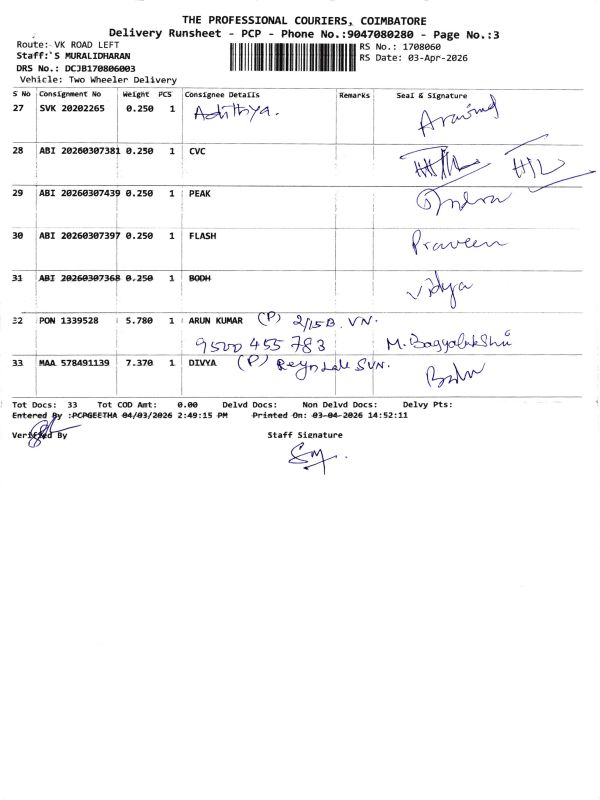 THE PROFESSIONAL COURIERS, COIMBATORE
Delivery Runsheet - PCP - Phone No.:9047080280 - Page No.:3
Route: VK ROAD LEFT
RS No.: 1708060
Staff: S MURALIDHARAN
RS Date: 03-Apr-2026
DRS No.: DCJB170806003
Vehicle: Two Wheeler Delivery
S No Consignment No Weight PCS Consignee Details Remarks Seal & Signature
27 SVK 20202265 0.250 1 Adithya. Aravind
28 ABI 20260307381 0.250 1 CVC
29 ABI 20260307439 0.250 1 PEAK Indra
30 ABI 20260307397 0.250 1 FLASH Praveen
31 ABI 20260307368 0.250 1 BODH Vidya
32 PON 1339528 5.780 1 ARUN KUMAR (P) 2/15B. VN.
9500 455 783 M. Bagyalakshmi
33 MAA 578491139 7.370 1 DIVYA (P) SVN.
Tot Docs: 33 Tot COD Amt: 0.00 Delvd Docs: Non Delvd Docs: Delvy Pts:
Entered By :PCPGEETHA 04/03/2026 2:49:15 PM Printed On: 03-04-2026 14:52:11
Verified By Staff Signature